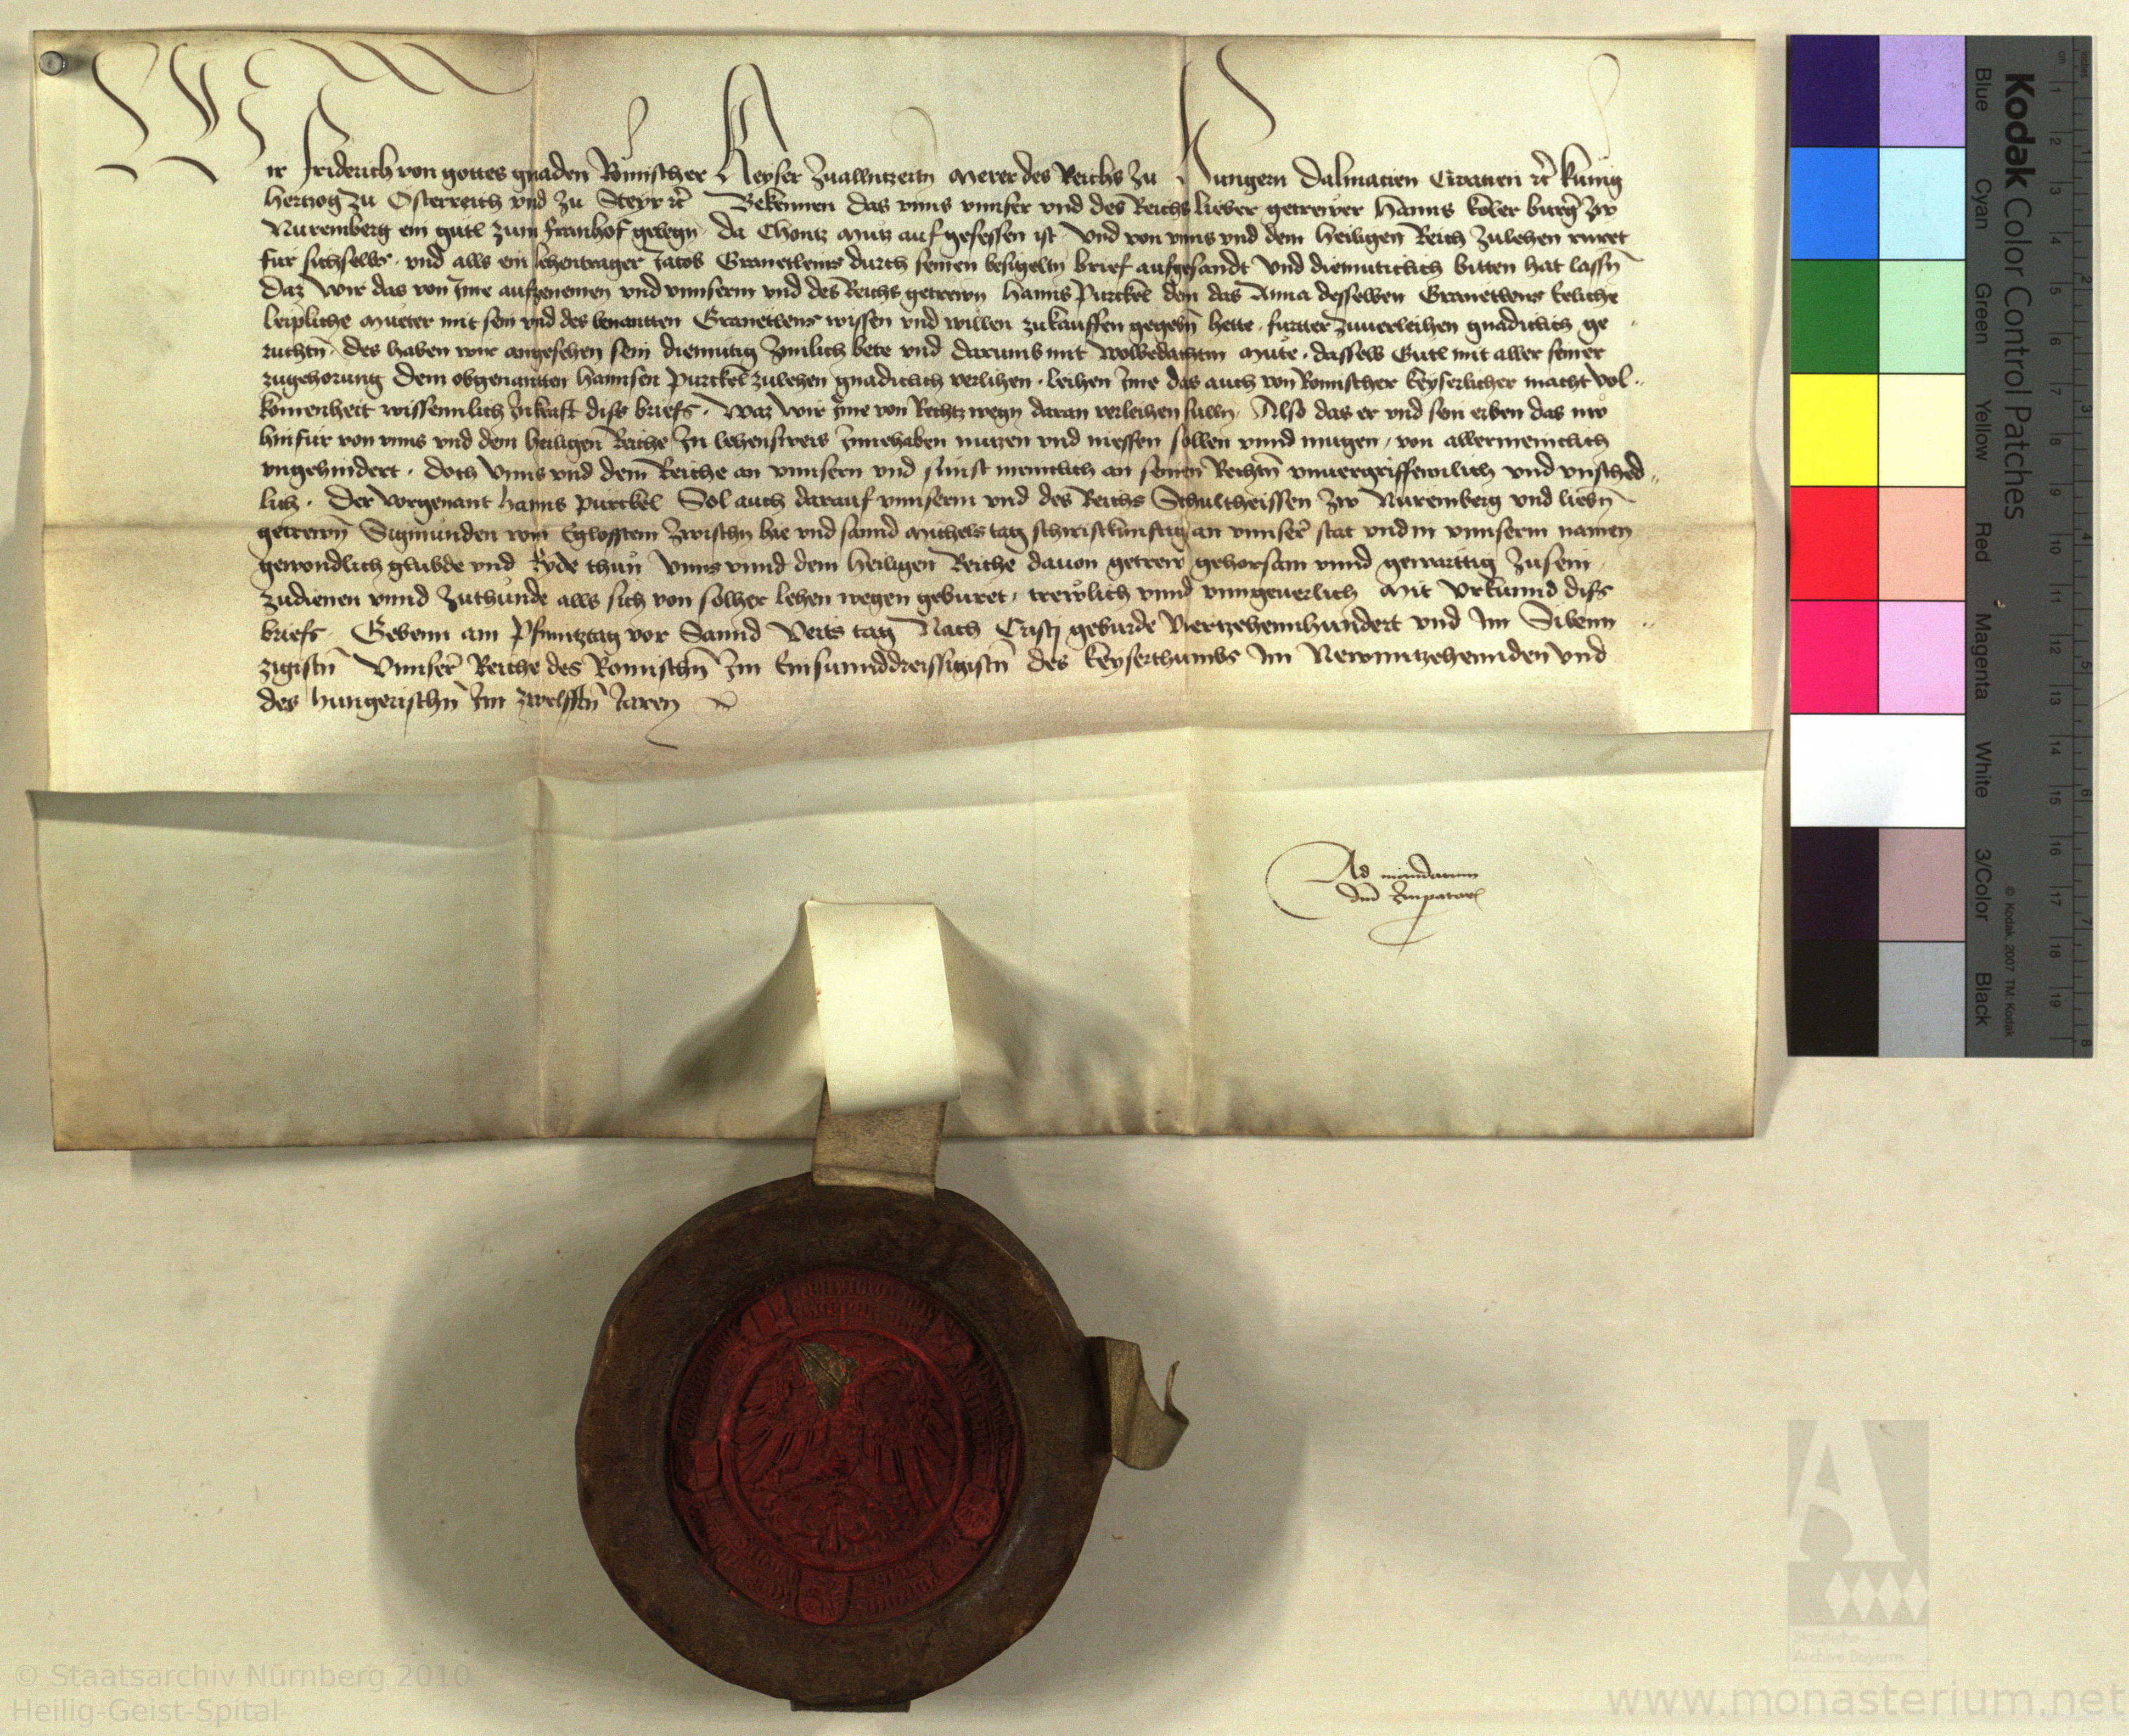 Wir Friderich von gottes gnaden Romischer Keyser zuallnntzeitn merer des Reichs zu Hungern Dalmacien Croacien ꝛc̄ kunig
hertzog zu Osterreich vnd zu Steyr ꝛc̄ Bekennen das vnns vnnser vnd des Reichs lieber getrewer Hanns kolber burḡ zw
Nuremberg ein gutl zum franhof gelegn da Chontz mutz auf gesessen ist Vnd von vnns vnd dem heiligen Reich zulehen ruret
fur sichselbs vnd alls ein lehentrager Jacob Granetleins durch seinen besigeltn brief aufgesandt vnd diemuticlich bitten hat lassn
Daz wir das von Jme aufzenemen vnd vnnserm vnd des Reichs getrewn Hanns Purckel dem das Anna desselben Granetleins Eeliche
leipliche mueter mit sein vnd des benantten Granetleins wissen vnd willen zukauffen gegebn hette furtter zuuerleihen gnadiclich ge
ruchtn des haben wir angesehen sein diemutig zimlich bete vnd darumb mit wolbedachtm mute dasselb Gutl mit aller seiner
zugehorung Dem obgenantten Hannsen Purckel zulehen gnadiclich verlihen leihen Jme das auch von Romischer keyserlicher macht vol
komenheit wissennlich Jnkraft diss briefs waz wir Jme von Rechtz wegn daran verleihen sulln Also das er vnd sein erben das nw
hinfur von vnns vnd dem heiligen Reiche Jn lehensweis Jnnehaben nutzen vnd niessen sollen vnnd mugen von allermeniclich
vngehindert doch vnns vnd dem Reiche an vnnsern vnd sunst meniclich an seinen Rechtn vnuergriffennlich vnd vnsched
lich Der vorgenant Hanns Purckel Sol auch darauf vnnserm vnd des Reichs Schultheissen zw Nuremberg vnd liebn
getrewn Sigmunden von Eglofstein zwischn hie vnd sannd Michels tag schiristkunftig an vnnser stat vnd in vnnserm namen
gewondlich glubde vnd Eyde thun vnns vnnd dem heiligen Reiche dauon getrew gehorsam vnnd gewarttig zusein
zudienen vnnd zuthunde alls sich von solher lehen wegen geburet trewlich vnnd vnngeuerlich Mit vrkunnd diss
briefs Gebenn am Pfinntztag vor Sannd Veits tag Nach Cristi geburde vierzehennhundert vnd Jm Sibenn
zigistn Vnnser Reiche des Romischn Jm Einsunnddreissigistn des keyserthumbs Jm Newnntzehennden vnd
des hungerischn Jm zwelfftn Jaren
Ad mandatum
dni Jmperatoris
Kodak Color Control Patches
Blue Cyan Green Yellow Red Magenta White 3/Color Black
© Kodak, 2007 TM: Kodak
© Staatsarchiv Nürnberg 2010
Heilig-Geist-Spital-
www.monasterium.net